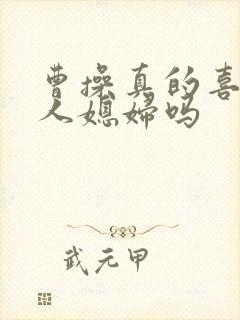 曹操真的喜
人媳妇吗
武元甲